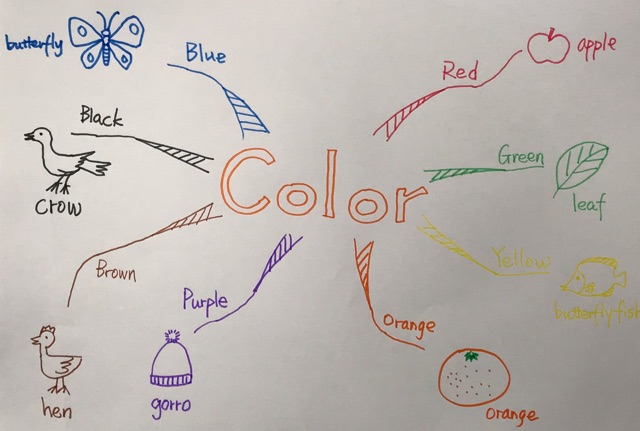 butterfly
Blue
Red
apple
Black
crow
Color
Green
leaf
Yellow
butterfly fish
Brown
hen
Purple
gorro
Orange
orange